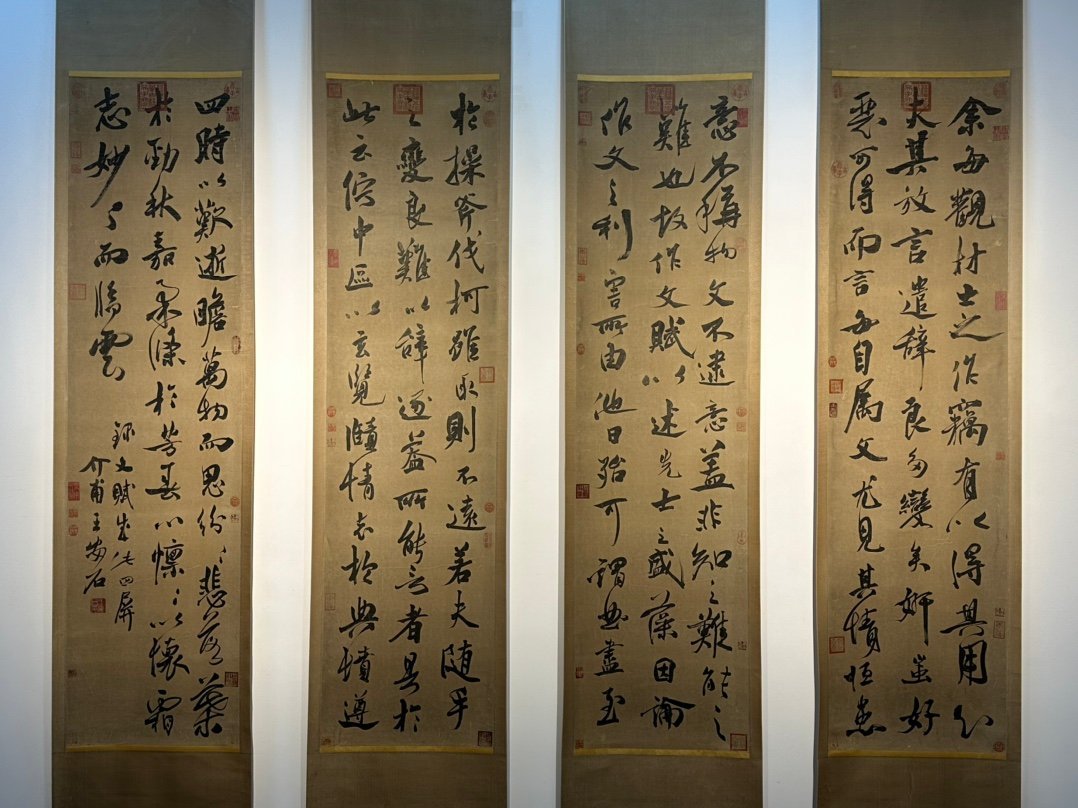 余每觀材士之作竊有以得其用心
夫其放言遣辭良多變矣妍蚩好
惡可得而言每自属文尤見其情恒患
意不稱物文不逮意盖非知之難能之
難也故作文賦以述先士之盛藻因論
作文之利害所由他日殆可謂曲盡至
於操斧伐柯雖取則不遠若夫随手
之變良難以辞逐盖所能言者具於
此云佇中區以玄覽頤情志於典墳遵
四時以歎逝瞻萬物而思紛々悲落葉
於勁秋嘉柔條於芳春心懍々以懷霜
志妙々而臨雲
録文賦成此四屏
介甫王安石